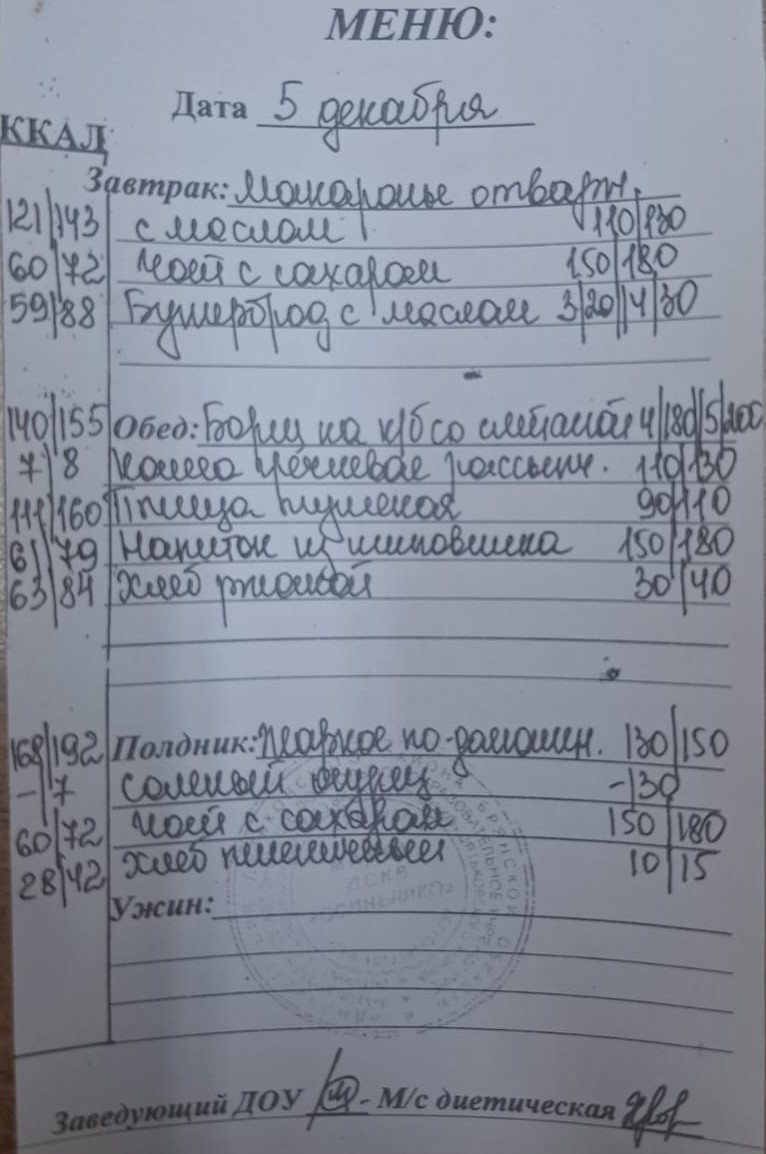 МЕНЮ:
Дата 5 декабря
ККАЛ
Завтрак: Макароны отварн.
121|143 с маслом 110|130
60|72 Чай с сахаром 150|180
59|88 Бутерброд с маслом 3|20|4|30
140|155 Обед: Борщ на к/б со сметаной 4|180|5|200
7|8 Каша гречневая рассыпч. 110|130
111|160 Птица тушеная 90|110
61|79 Напиток из шиповника 150|180
63|84 Хлеб ржаной 30|40
168|192 Полдник: Жаркое по-домашн. 130|150
-|7 соленый огурец -|30
60|72 Чай с сахаром 150|180
28|42 Хлеб пшеничный 10|15
Ужин:
БРЯНСКОЙ
«СОЛНЫШКО»
Заведующий ДОУ - М/с диетическая